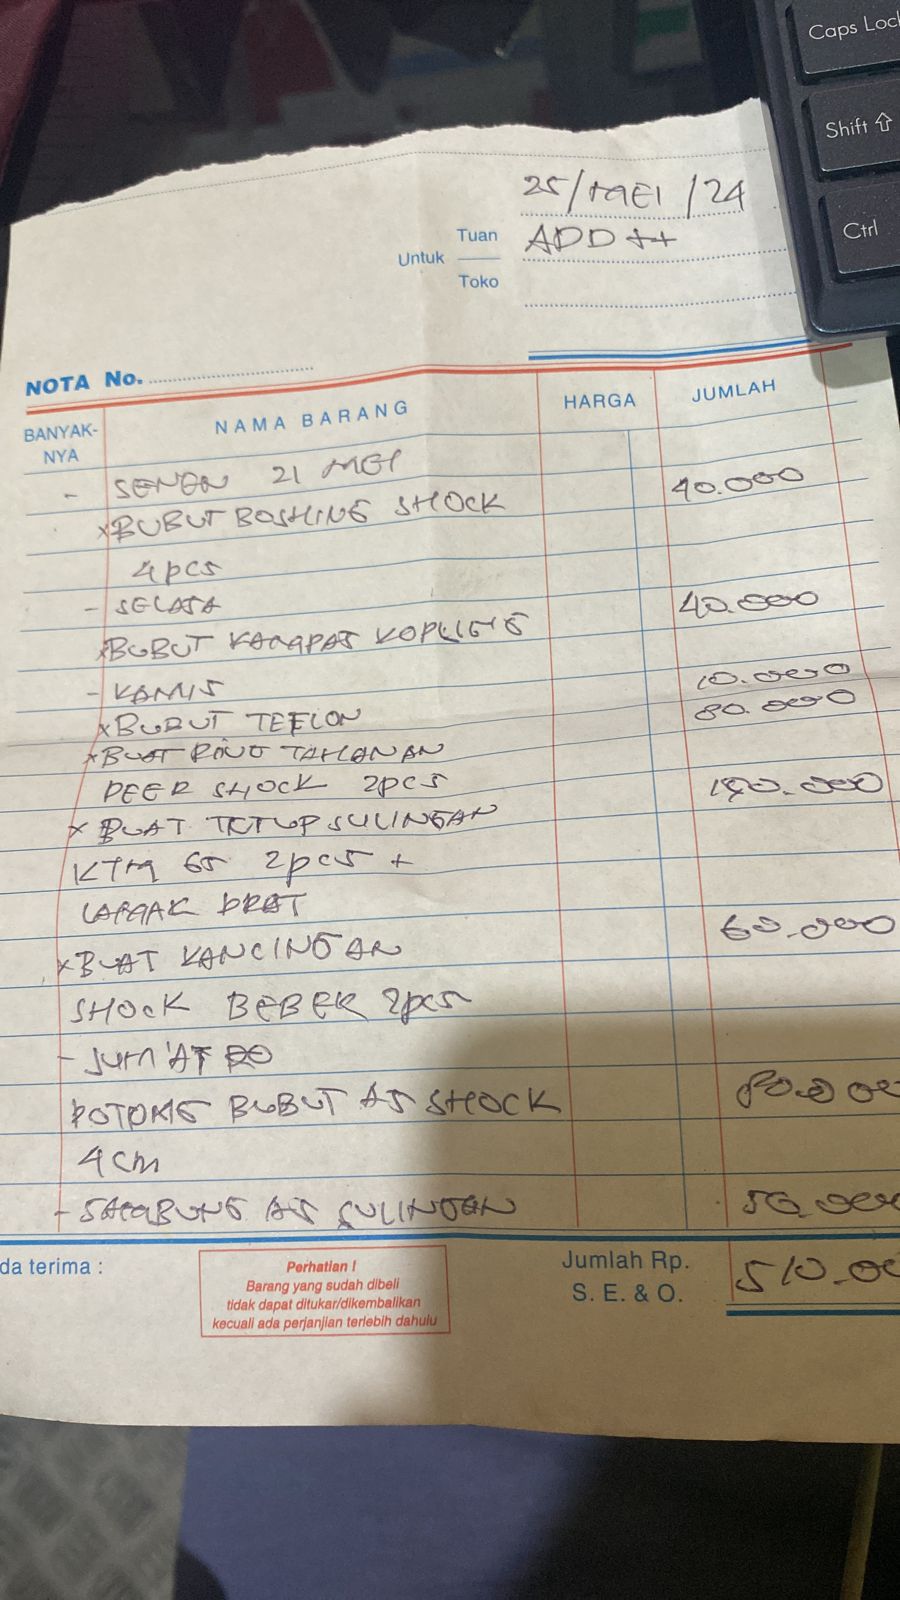 Caps Loc
Shift
Ctrl
25/MEI/24
Untuk Tuan ADD ++
Toko
NOTA No.
BANYAK-NYA NAMA BARANG HARGA JUMLAH
- SENEN 21 MEI
x BUBUT BOSHING SHOCK 40.000
4 pcs
- SELASA
x BUBUT KAMPAS KOPLING 40.000
- KAMIS
x BUBUT TEFLON 10.000
x BUAT RING TAHANAN 80.000
PEER SHOCK 2pcs
x BUAT TUTUP SULINGAN
KTM 65 2pcs +
DRAT
x BUAT KANCINGAN 60.000
SHOCK BEBEK 2pcs
- JUM'AT
POTONG BUBUT AS SHOCK 80.000
4 cm
- SAMBUNG AS SULINGAN 50.000
da terima :
Perhatian !
Barang yang sudah dibeli
tidak dapat ditukar/dikembalikan
kecuali ada perjanjian terlebih dahulu
Jumlah Rp. 510.00
S. E. & O.